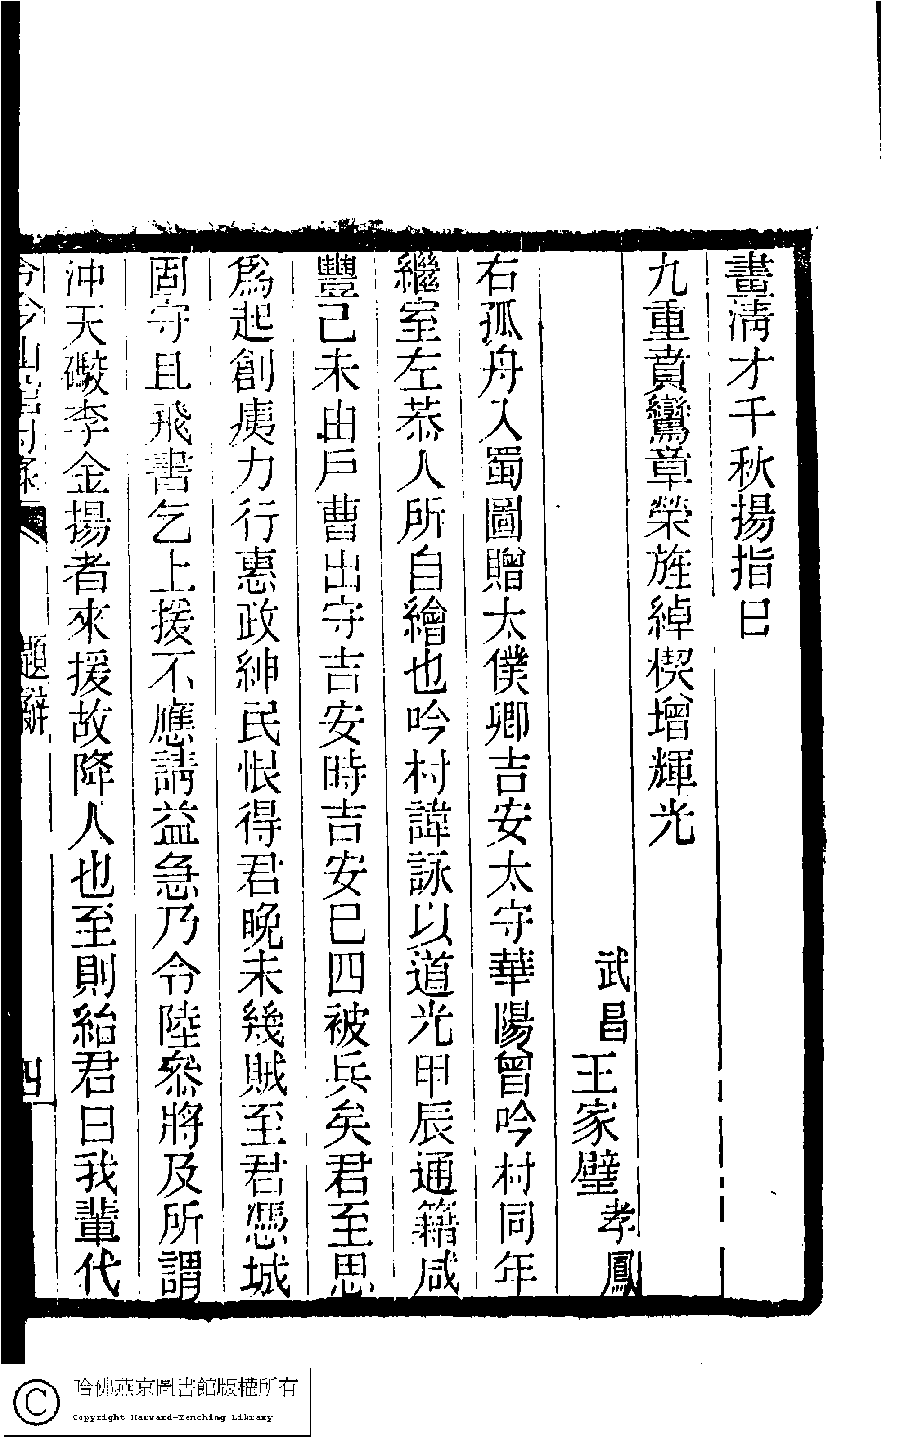 畫淸才千秋揚指曰
九重賁鸞章榮旌綽楔增輝光
武昌王家璧孝鳳
右孤舟入蜀圖贈太僕卿吉安太守華陽曾吟村同年
繼室左恭人所自繪也吟村諱詠以道光甲辰通籍咸
豐己未由戶曹出守吉安時吉安已四被兵矣君至思
爲起創痍力行惠政紳民恨得君晚未幾賊至君憑城
固守且飛書乞上援不應請益急乃令陸叅將及所謂
沖天礮李金揚者來援故降人也至則紿君曰我輩代
題辭
四
哈佛燕京圖書館版權所有
Copyright Harvard-Yenching Library